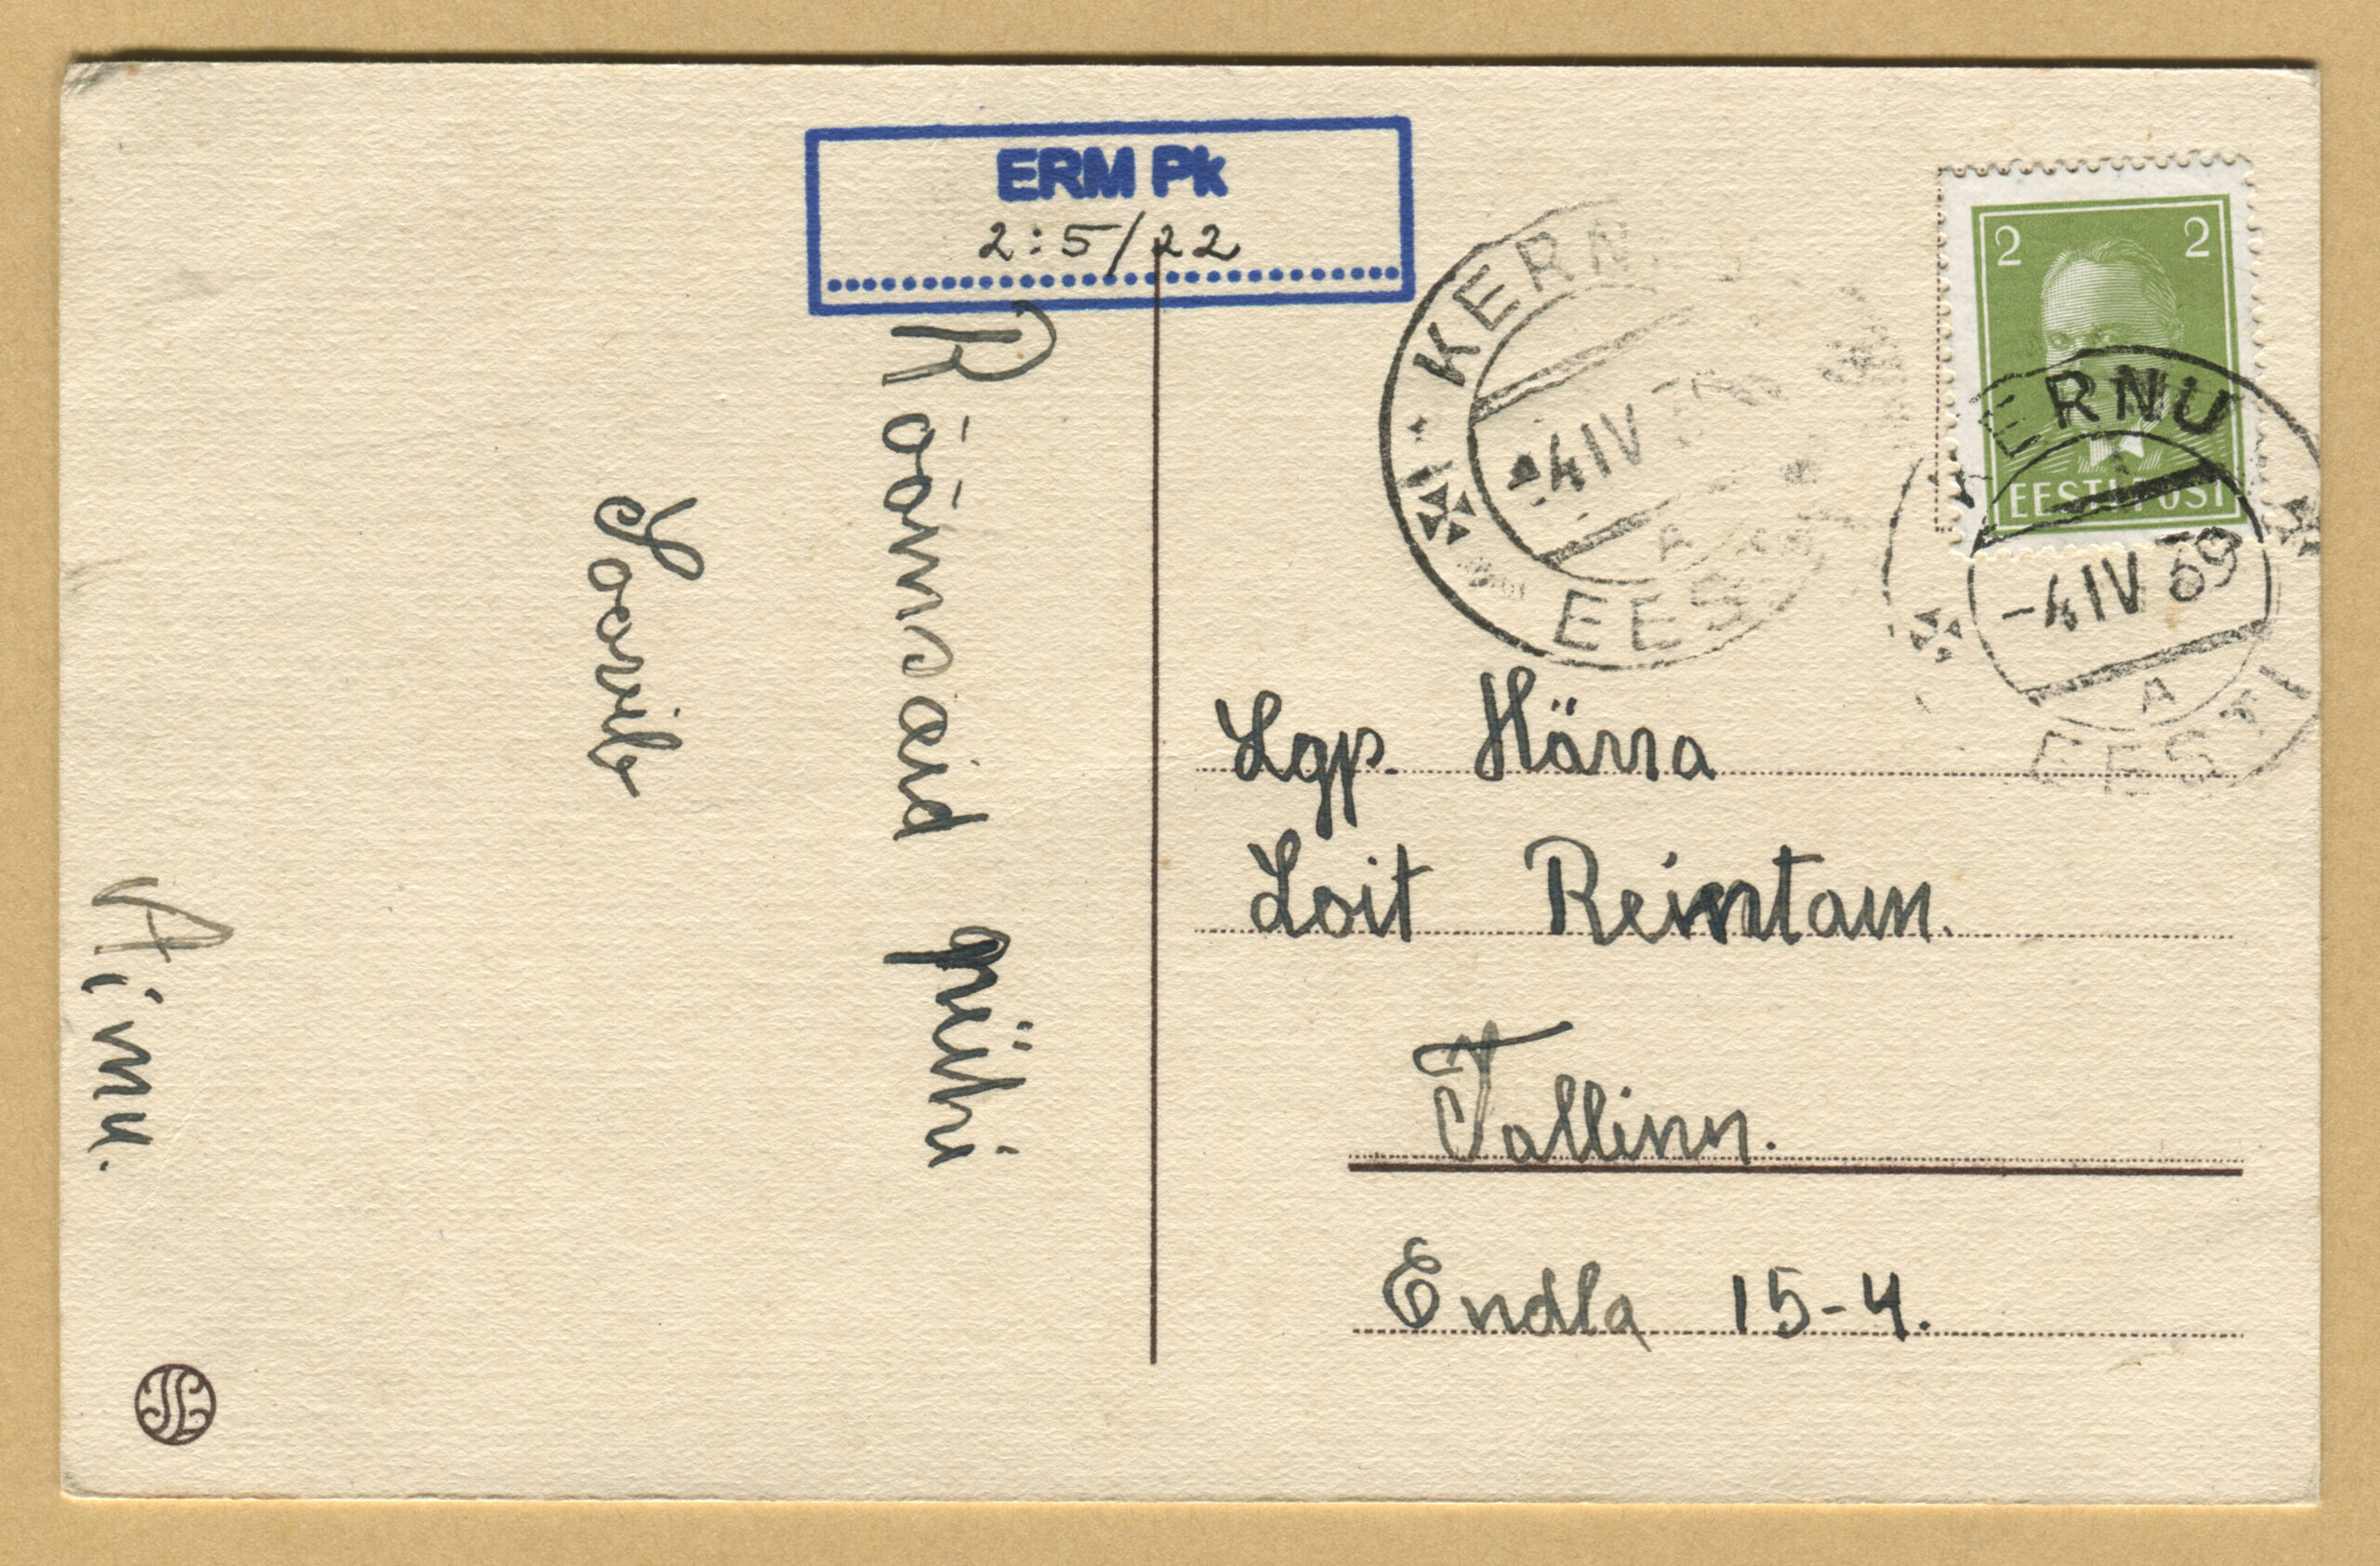 ERM Pk
2:5/22
Rõõmsaid pühi
Soovib
Aino.
KERNU
-4 IV 39
A
EES
2 2
EESTI POST
KERNU
-4 IV 39
A
EESTI
Lgp. Härra
Loit Reintam.
Tallinn.
Endla 15-4.